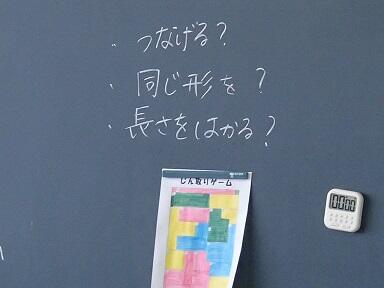 ・つなげる?
・同じ形を?
・長さをはかる?
じん取りゲーム